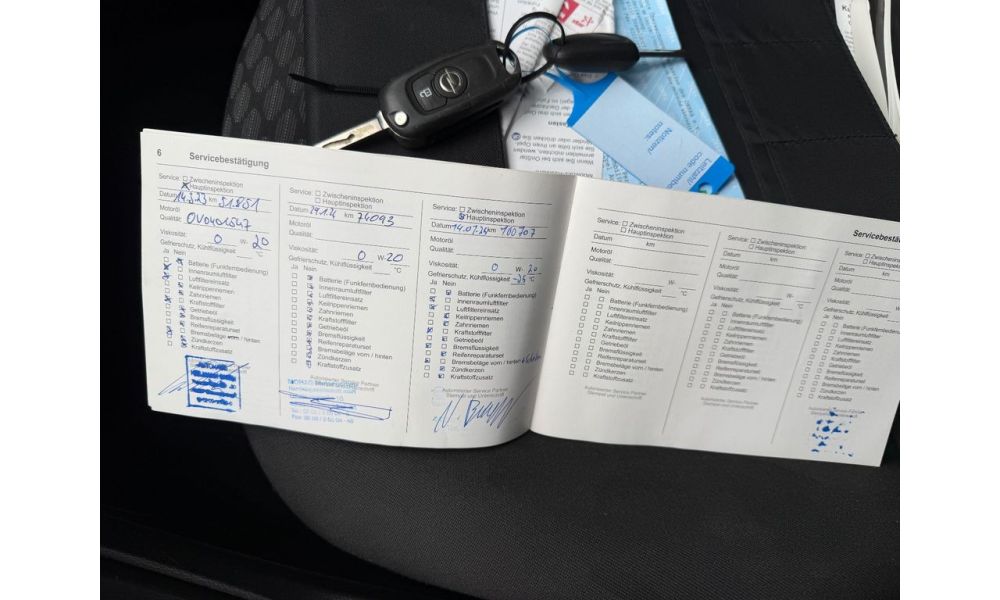 6 Servicebestätigung
Service: Zwischeninspektion
Hauptinspektion
Datum 14.3.23 km 51.851
Motoröl
Qualität: OV0401547
Viskosität: 0 W- 20
Gefrierschutz, Kühlflüssigkeit °C
Ja Nein
Batterie (Funkfernbedienung)
Innenraumluftfilter
Luftfiltereinsatz
Keilrippenriemen
Zahnriemen
Kraftstofffilter
Getriebeöl
Bremsflüssigkeit
Reifenreparaturset
Bremsbeläge vorn / hinten
Zündkerzen
Kraftstoffzusatz
Service: Zwischeninspektion
Hauptinspektion
Datum 29.1.24 km 74093
Motoröl
Qualität:
Viskosität: 0 W- 20
Gefrierschutz, Kühlflüssigkeit °C
Ja Nein
Batterie (Funkfernbedienung)
Innenraumluftfilter
Luftfiltereinsatz
Keilrippenriemen
Zahnriemen
Kraftstofffilter
Getriebeöl
Bremsflüssigkeit
Reifenreparaturset
Bremsbeläge vorn / hinten
Zündkerzen
Kraftstoffzusatz
Autorisierter Service Partner
Stempel und Unterschrift
Service: Zwischeninspektion
Hauptinspektion
Datum 14.07.24 km 100707
Motoröl
Qualität:
Viskosität: 0 W- 20
Gefrierschutz, Kühlflüssigkeit -25 °C
Ja Nein
Batterie (Funkfernbedienung)
Innenraumluftfilter
Luftfiltereinsatz
Keilrippenriemen
Zahnriemen
Kraftstofffilter
Getriebeöl
Bremsflüssigkeit
Reifenreparaturset
Bremsbeläge vorn / hinten
Zündkerzen
Kraftstoffzusatz
Autorisierter Service Partner
Stempel und Unterschrift
Service: Zwischeninspektion
Hauptinspektion
Datum km
Motoröl
Qualität:
Viskosität: W-
Gefrierschutz, Kühlflüssigkeit °C
Ja Nein
Batterie (Funkfernbedienung)
Innenraumluftfilter
Luftfiltereinsatz
Keilrippenriemen
Zahnriemen
Kraftstofffilter
Getriebeöl
Bremsflüssigkeit
Reifenreparaturset
Bremsbeläge vorn / hinten
Zündkerzen
Kraftstoffzusatz
Autorisierter Service Partner
Stempel und Unterschrift
Service: Zwischeninspektion
Hauptinspektion
Datum km
Motoröl
Qualität:
Viskosität: W-
Gefrierschutz, Kühlflüssigkeit °C
Ja Nein
Batterie (Funkfernbedienung)
Innenraumluftfilter
Luftfiltereinsatz
Keilrippenriemen
Zahnriemen
Kraftstofffilter
Getriebeöl
Bremsflüssigkeit
Reifenreparaturset
Bremsbeläge vorn / hinten
Zündkerzen
Kraftstoffzusatz
Autorisierter Service Partner
Stempel und Unterschrift
Servicebestä
Service: Zwischeninspektion
Hauptinspektion
Datum km
Motoröl
Qualität:
Viskosität:
Gefrierschutz, Kühlflüssigkeit
Ja Nein
Batterie (Funkfernbedienung)
Innenraumluftfilter
Luftfiltereinsatz
Keilrippenriemen
Zahnriemen
Kraftstofffilter
Getriebeöl
Bremsflüssigkeit
Reifenreparaturset
Bremsbeläge vorn / hinten
Zündkerzen
Kraftstoffzusatz
Autorisierter Service Partner
Notizen/
notes:
Leitzahl/
code number